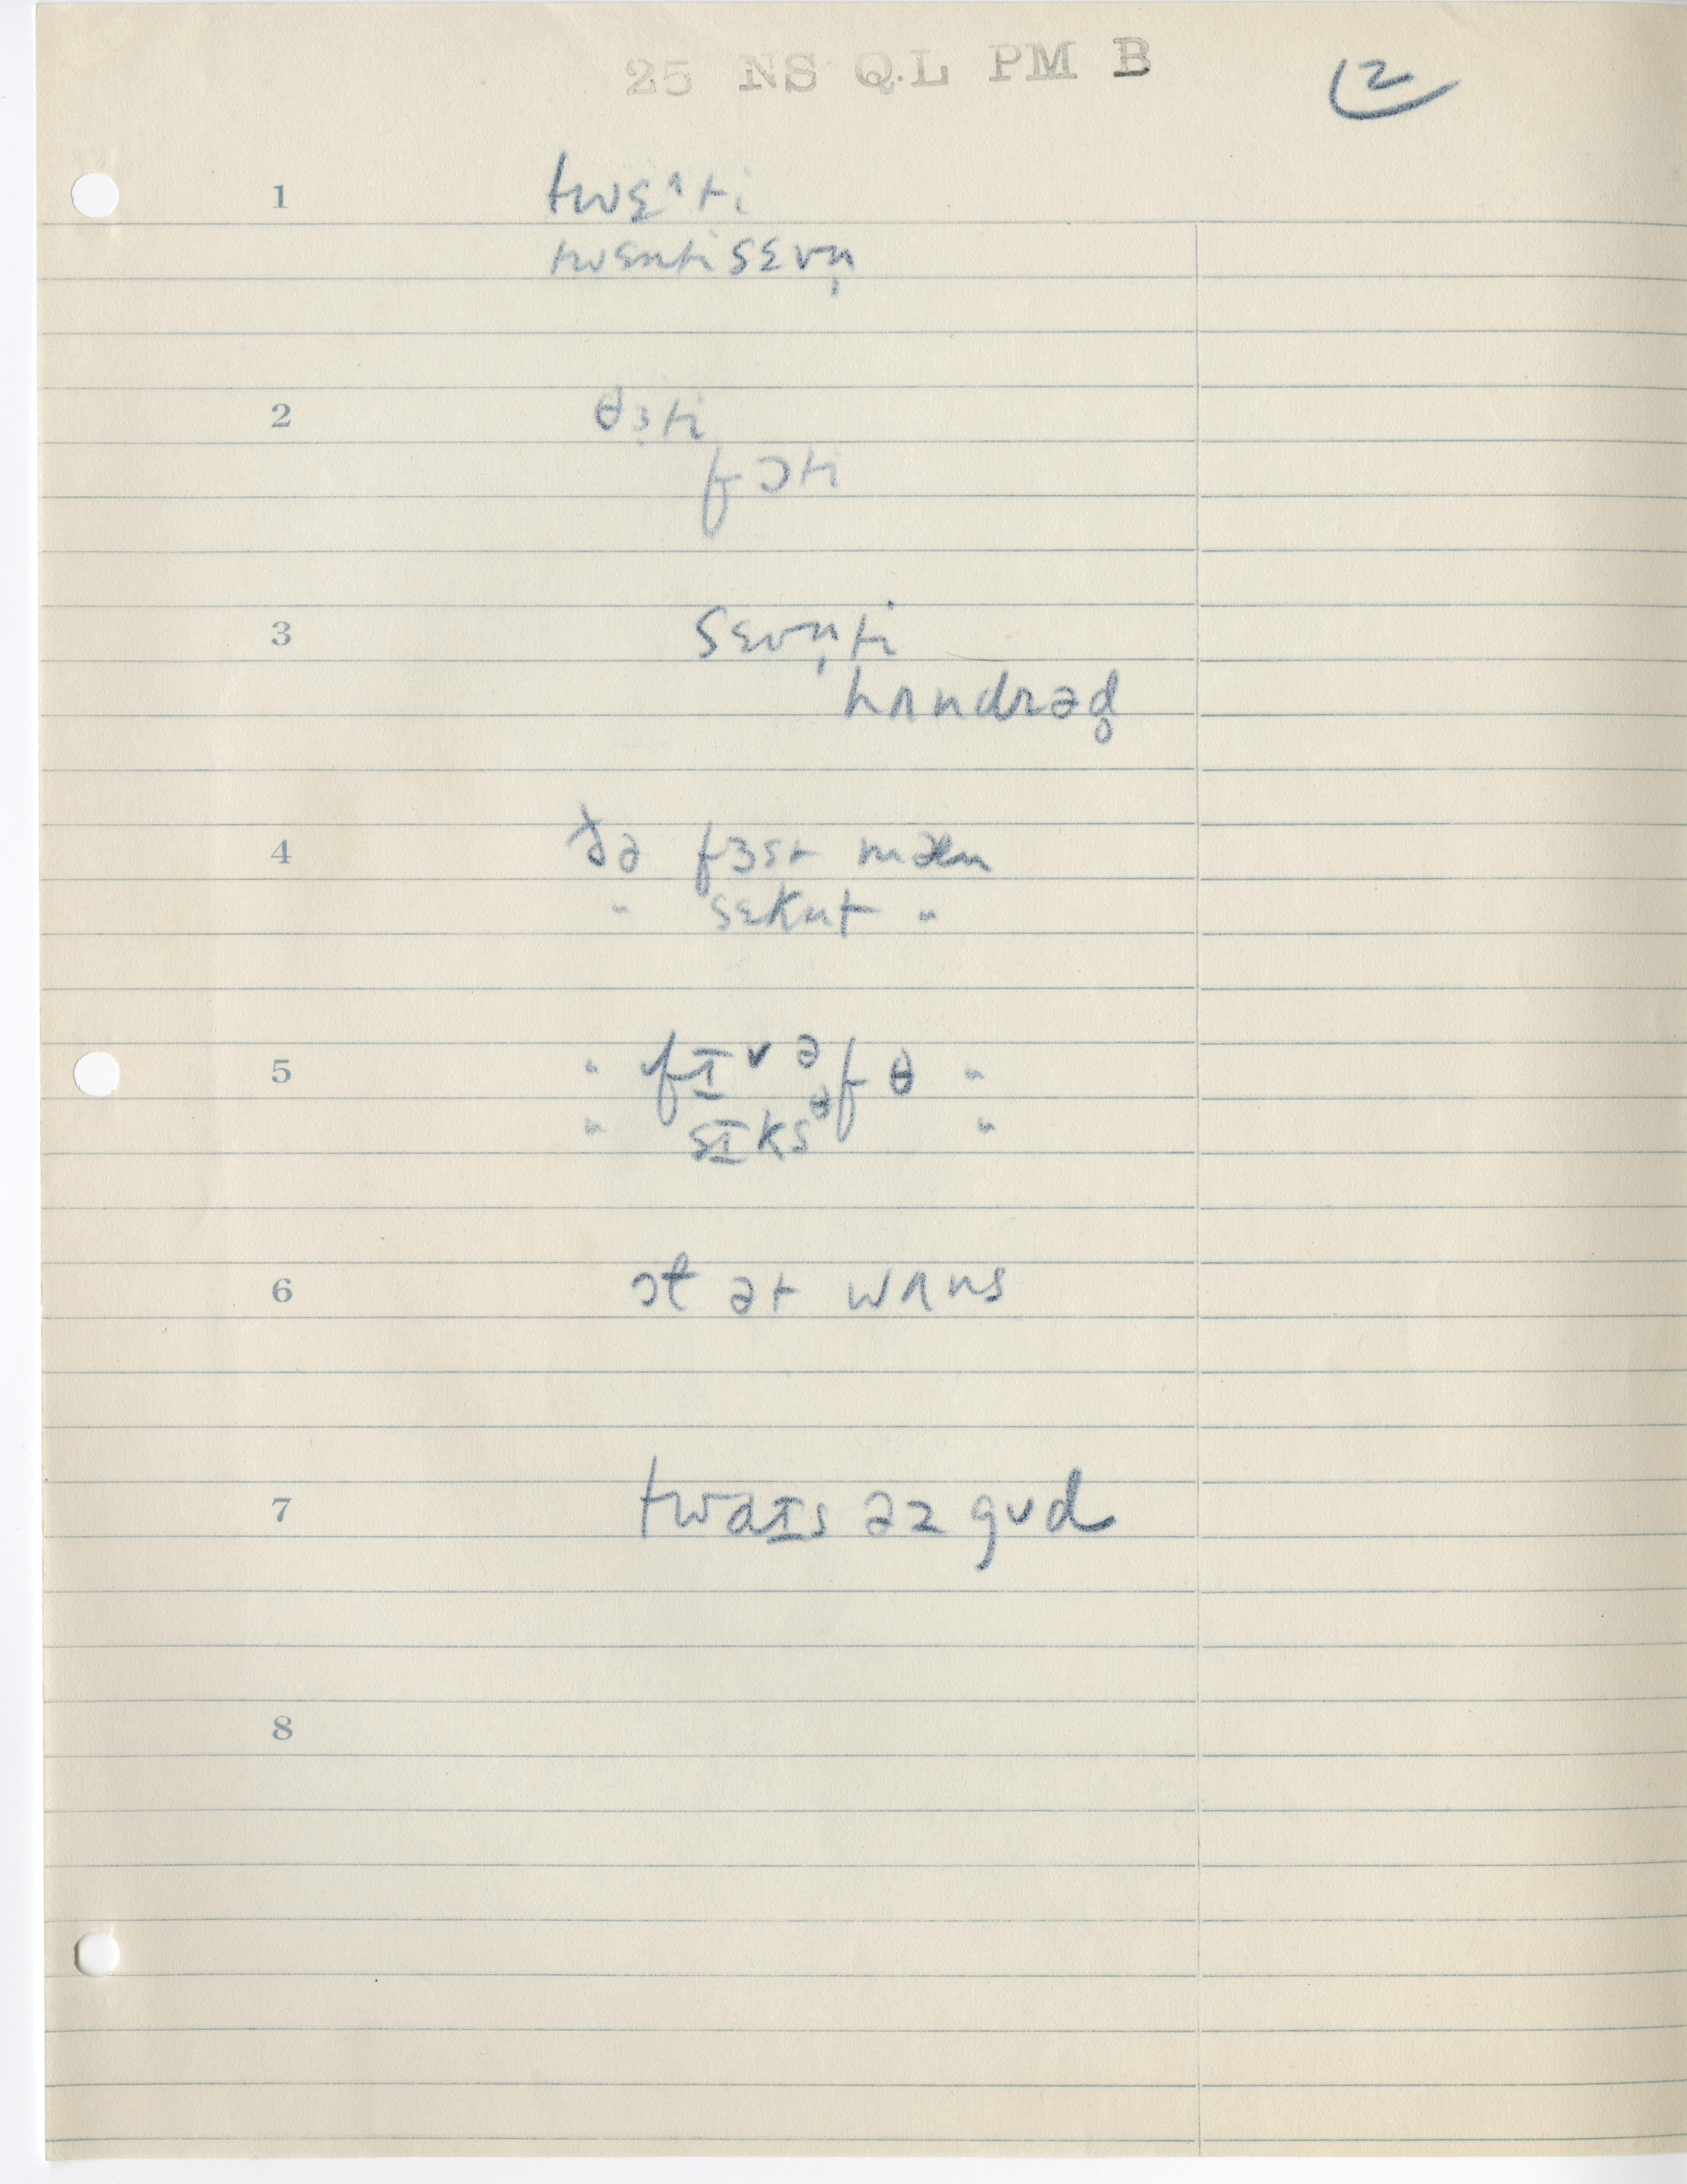 25 NS Q.L PM B
2
1 twɛⁿti
twɛntisɛvn̩
2 θɜti
fɔti
3 sɛvn̩ti
hʌndrəd̥
4 ðə fɜst mæn
" sɛknt "
5 " fɪv əfθ "
" sɪksθ "
6 ɔɫ ət wʌns
7 twaɪs əz gʊd
8